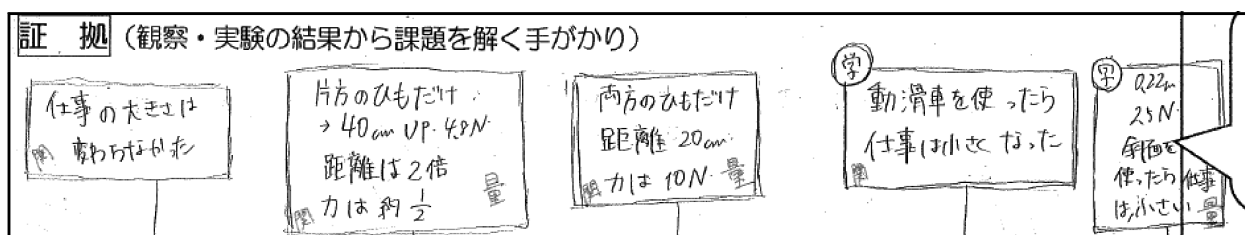 証 拠（観察・実験の結果から課題を解く手がかり）
仕事の大きさは
変わらなかった
関
片方のひもだけ
→ 40cm UP. 4.8N.
距離は2倍
力は約1/2
関
量
両方のひもだけ
距離20cm.
力は10N.
関
量
学
動滑車を使ったら
仕事は小さくなった
関
学
0.22m
2.5N.
斜面を
使ったら仕事
は小さい
量